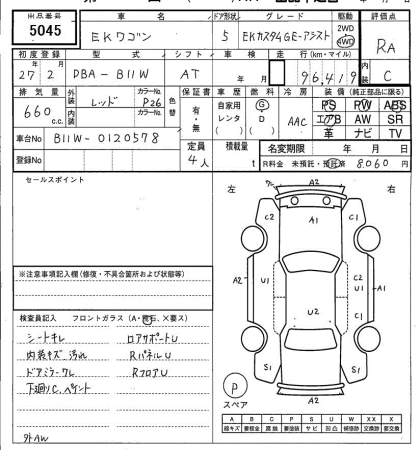 出品番号 車 名 ドア形状 グレード 駆動 評価点
5045 EKワゴン 5 EKカスタムGE-アシスト 2WD 4WD RA
初度登録 型 式 シフト 車 検 走 行 (km・マイル) 内装
27年 2月 DBA-B11W AT 年 月 96,419 C
排気量 外装 カラーNo. 色替 保証書 車歴 燃料 冷房 装備 (純正部品に限る)
660 c.c. レッド P26 有・無 自家用 レンタ ( ) G・D ( ) AAC PS PW ABS
内装 カラーNo. エアB AW SR
革 ナビ TV
車台No B11W-0120578 定員 4人 積載量 t 名変期限 年 月 日
登録No R料金 未預託・預託済 8,060 円
セールスポイント 左 右
A2
C2 A1 C1
A2 U1 C2 U1 A1
U2
S1 S1
A2
※注意事項記入欄(修復・不具合箇所および状態等)
検査員記入 フロントガラス (A・飛石、×要ス)
シートキレ ロアサポートU
内装キズ 汚れ RパネルU
ドアミラーワレ RフロアU
下廻りC、ペイント
外AW
P
スペア
A B C P S U W X XX
線キズ 要板金 腐蝕 要塗装 サビ 凹凸 補修跡 要交換 交換済